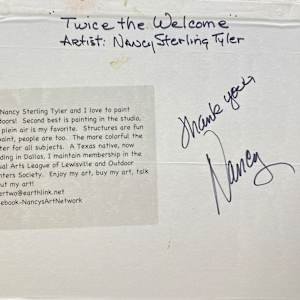 Twice the Welcome
Artist: Nancy Sterling Tyler
Nancy Sterling Tyler and I love to paint
doors! Second best is painting in the studio,
plein air is my favorite. Structures are fun
paint, people are too. The more colorful the
ter for all subjects. A Texas native, now
ding in Dallas, I maintain membership in the
ual Arts League of Lewisville and Outdoor
nters Society. Enjoy my art, buy my art, talk
out my art!
ertwo@earthlink.net
ebook-NancysArtNetwork
Thank you,
Nancy